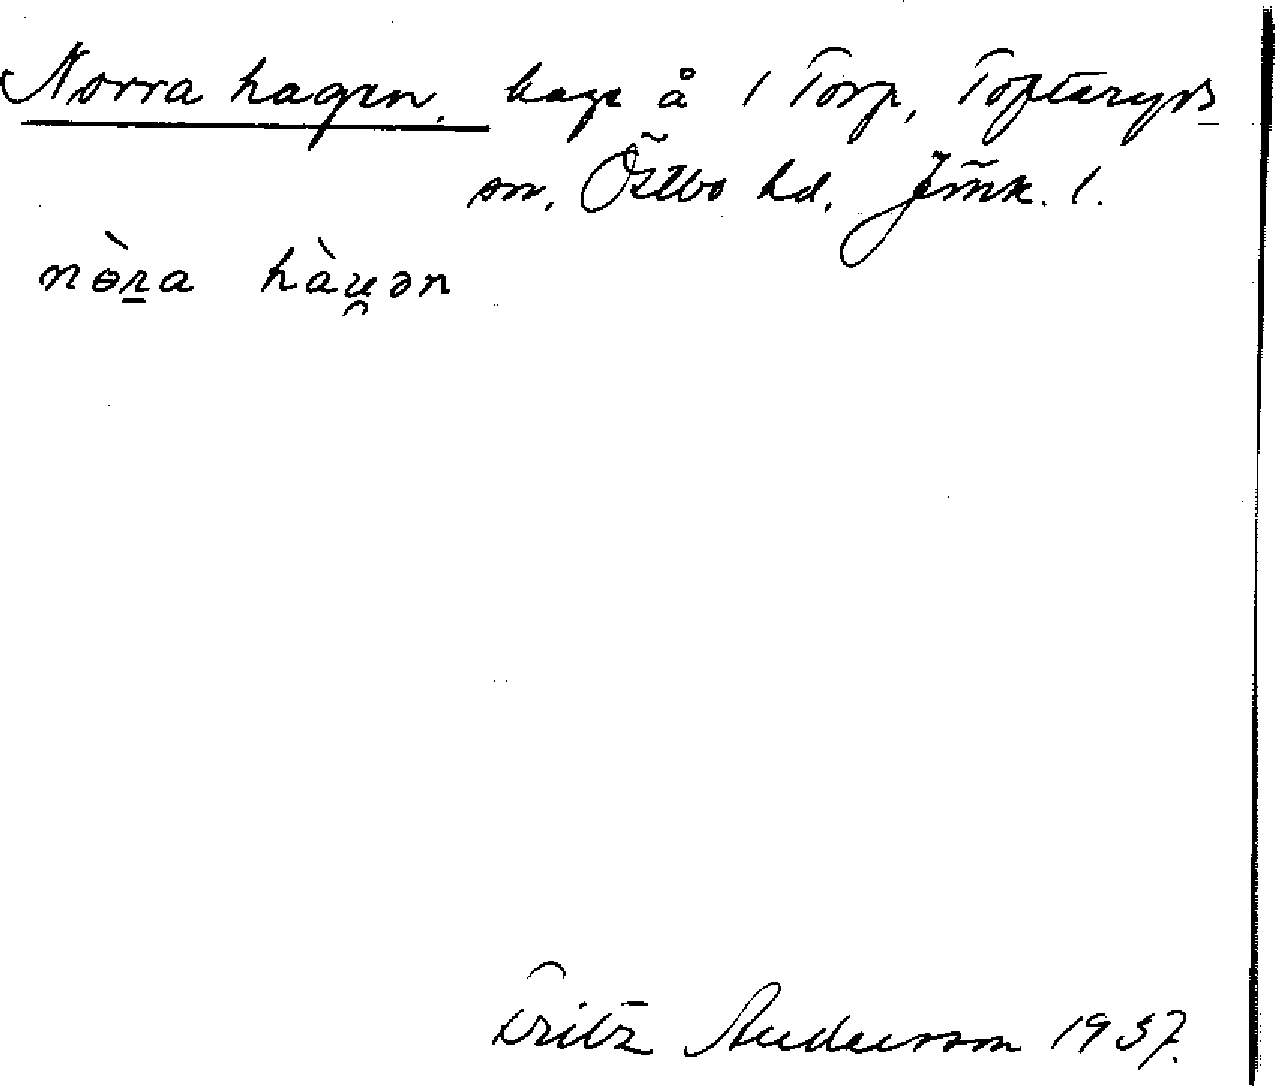 Norra hagen, hage å 1 Torp, Tofteryds
sn, Östbo hd. Jönk. l.
nɵ̀ṟa hàu̯ən
Fritz Andersson 1937.